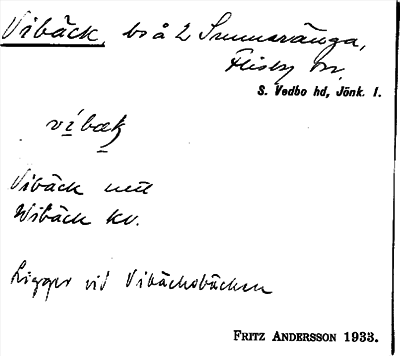 Vibäck, bs å 2 Sunneränga,
Flisby sn,
S. Vedbo hd, Jönk. l.
vibæk
Vibäck
Wibäck kv.
Ligger vid Vibäcksbäcken
FRITZ ANDERSSON 1933.